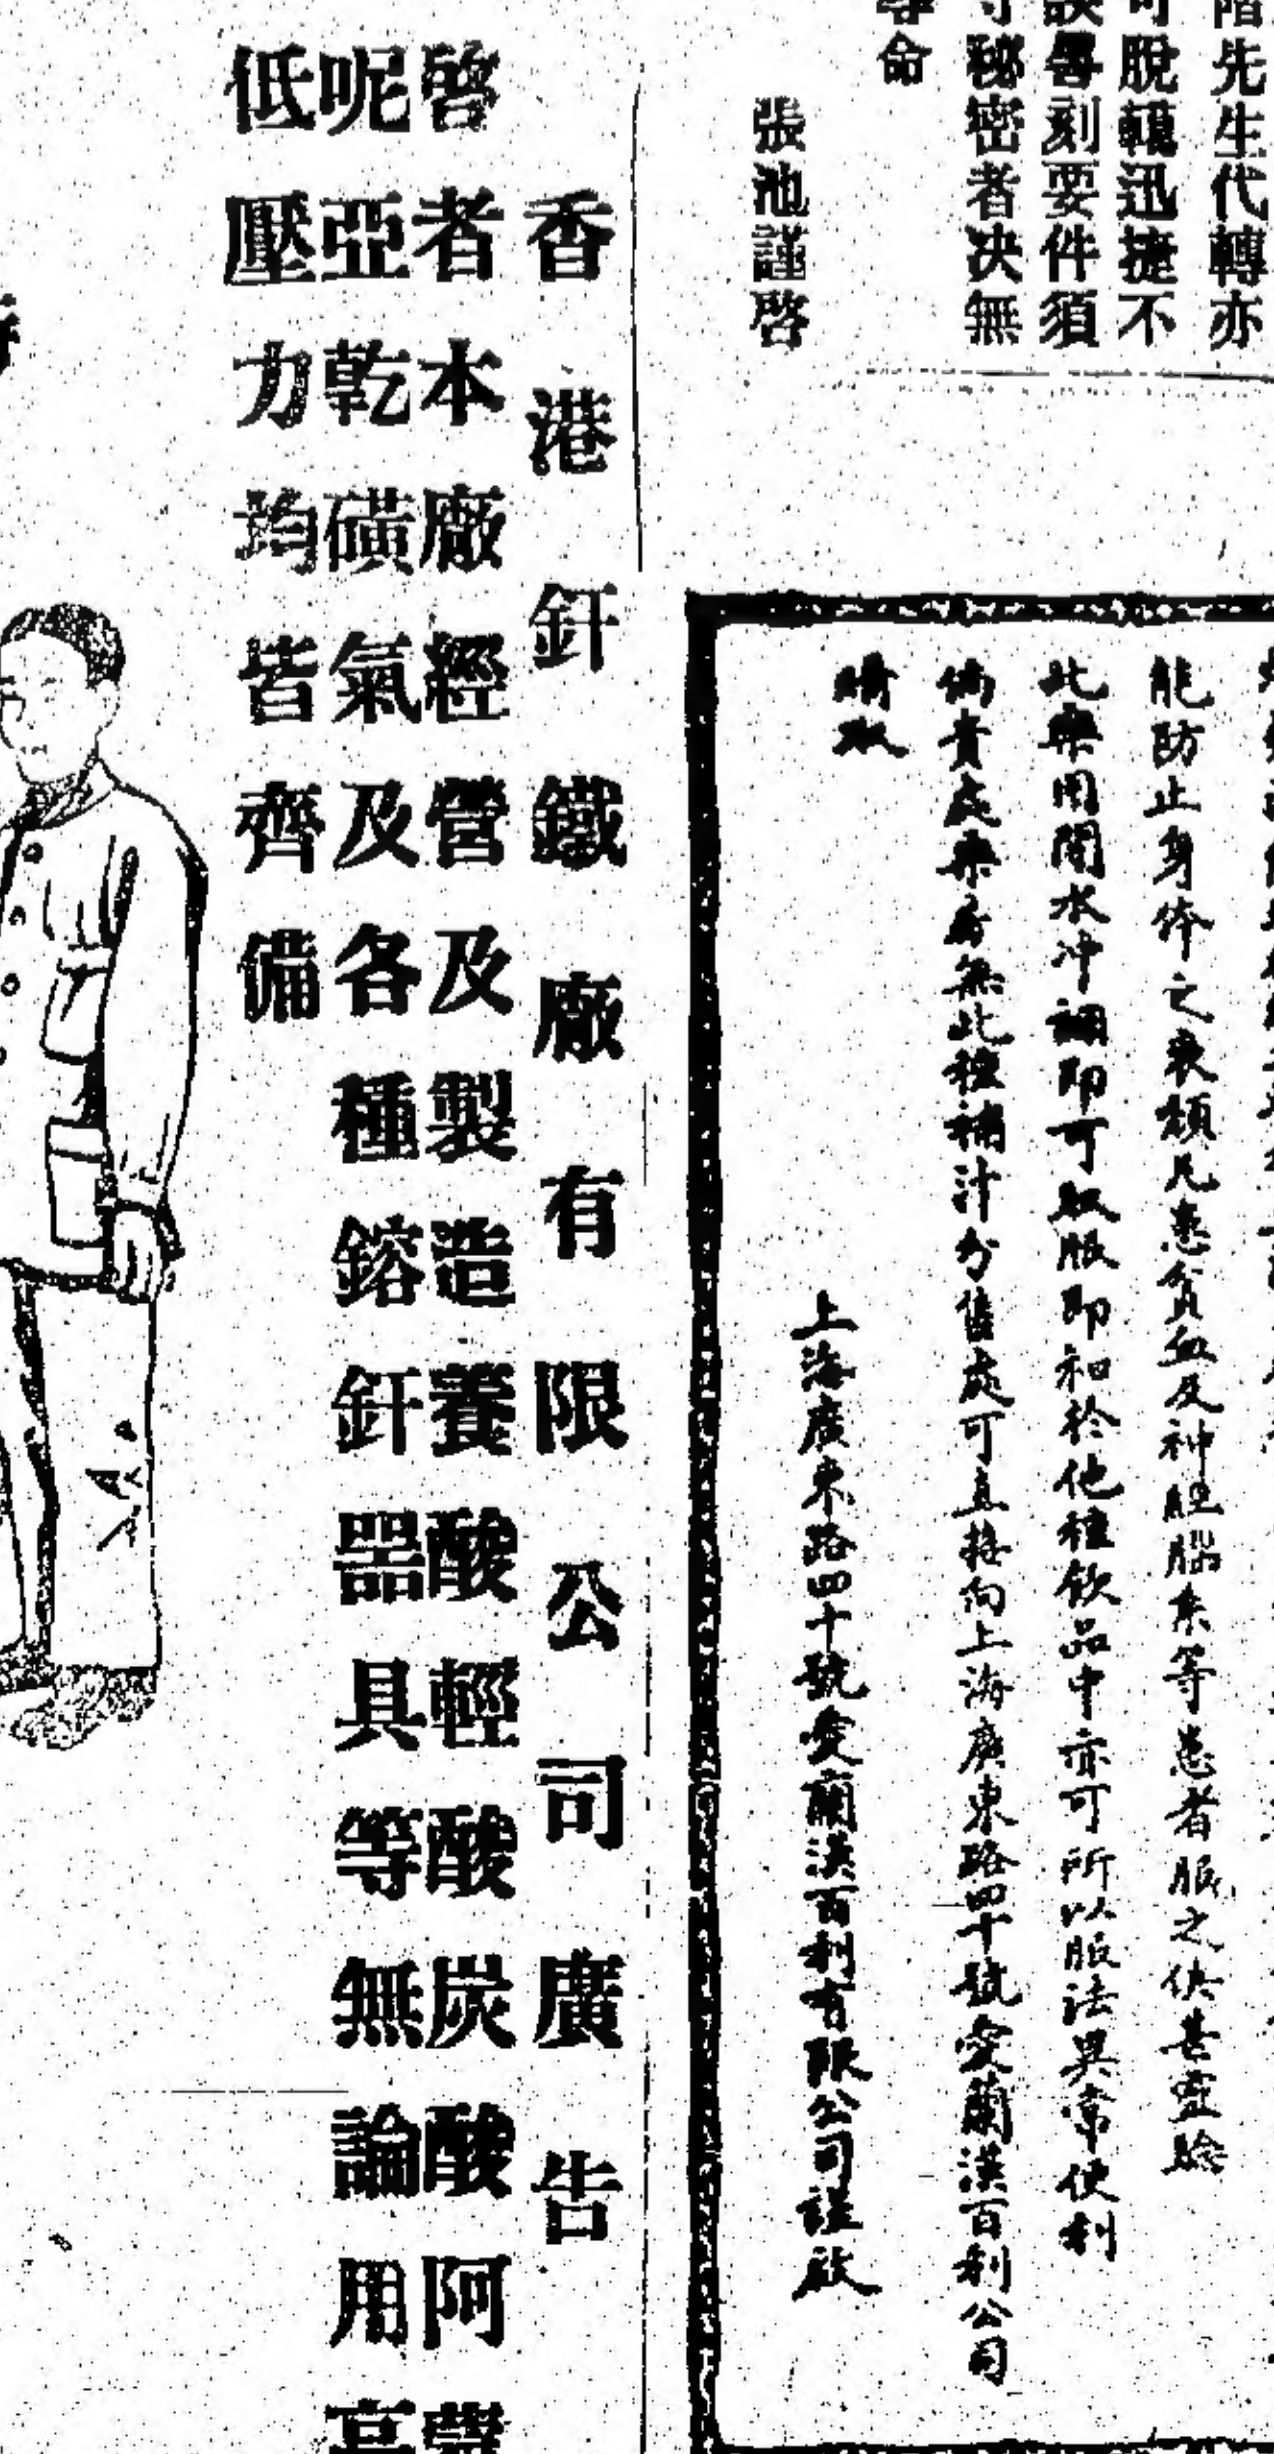 階先生代轉亦
可脫輻迅捷不
誤晷刻要件須
守秘密者決無
尊命
張池謹啓
能防止身体之衰頹凡患貧血及神經腦系等患者服之俱甚靈驗
此藥用開水冲調即可取服即和於他種飲品中亦可所以服法異常便利
倘貴處藥房無此種補汁分售處可直接向上海廣東路四十號愛蘭漢百利公司
購取
上海廣東路四十號愛蘭漢百利有限公司謹啟
香港釬鐵廠有限公司廣告
啓者本廠經營及製造養酸輕酸炭酸阿
呢亞乾磺氣及各種鎔釬器具等無論用高
低壓力均皆齊備